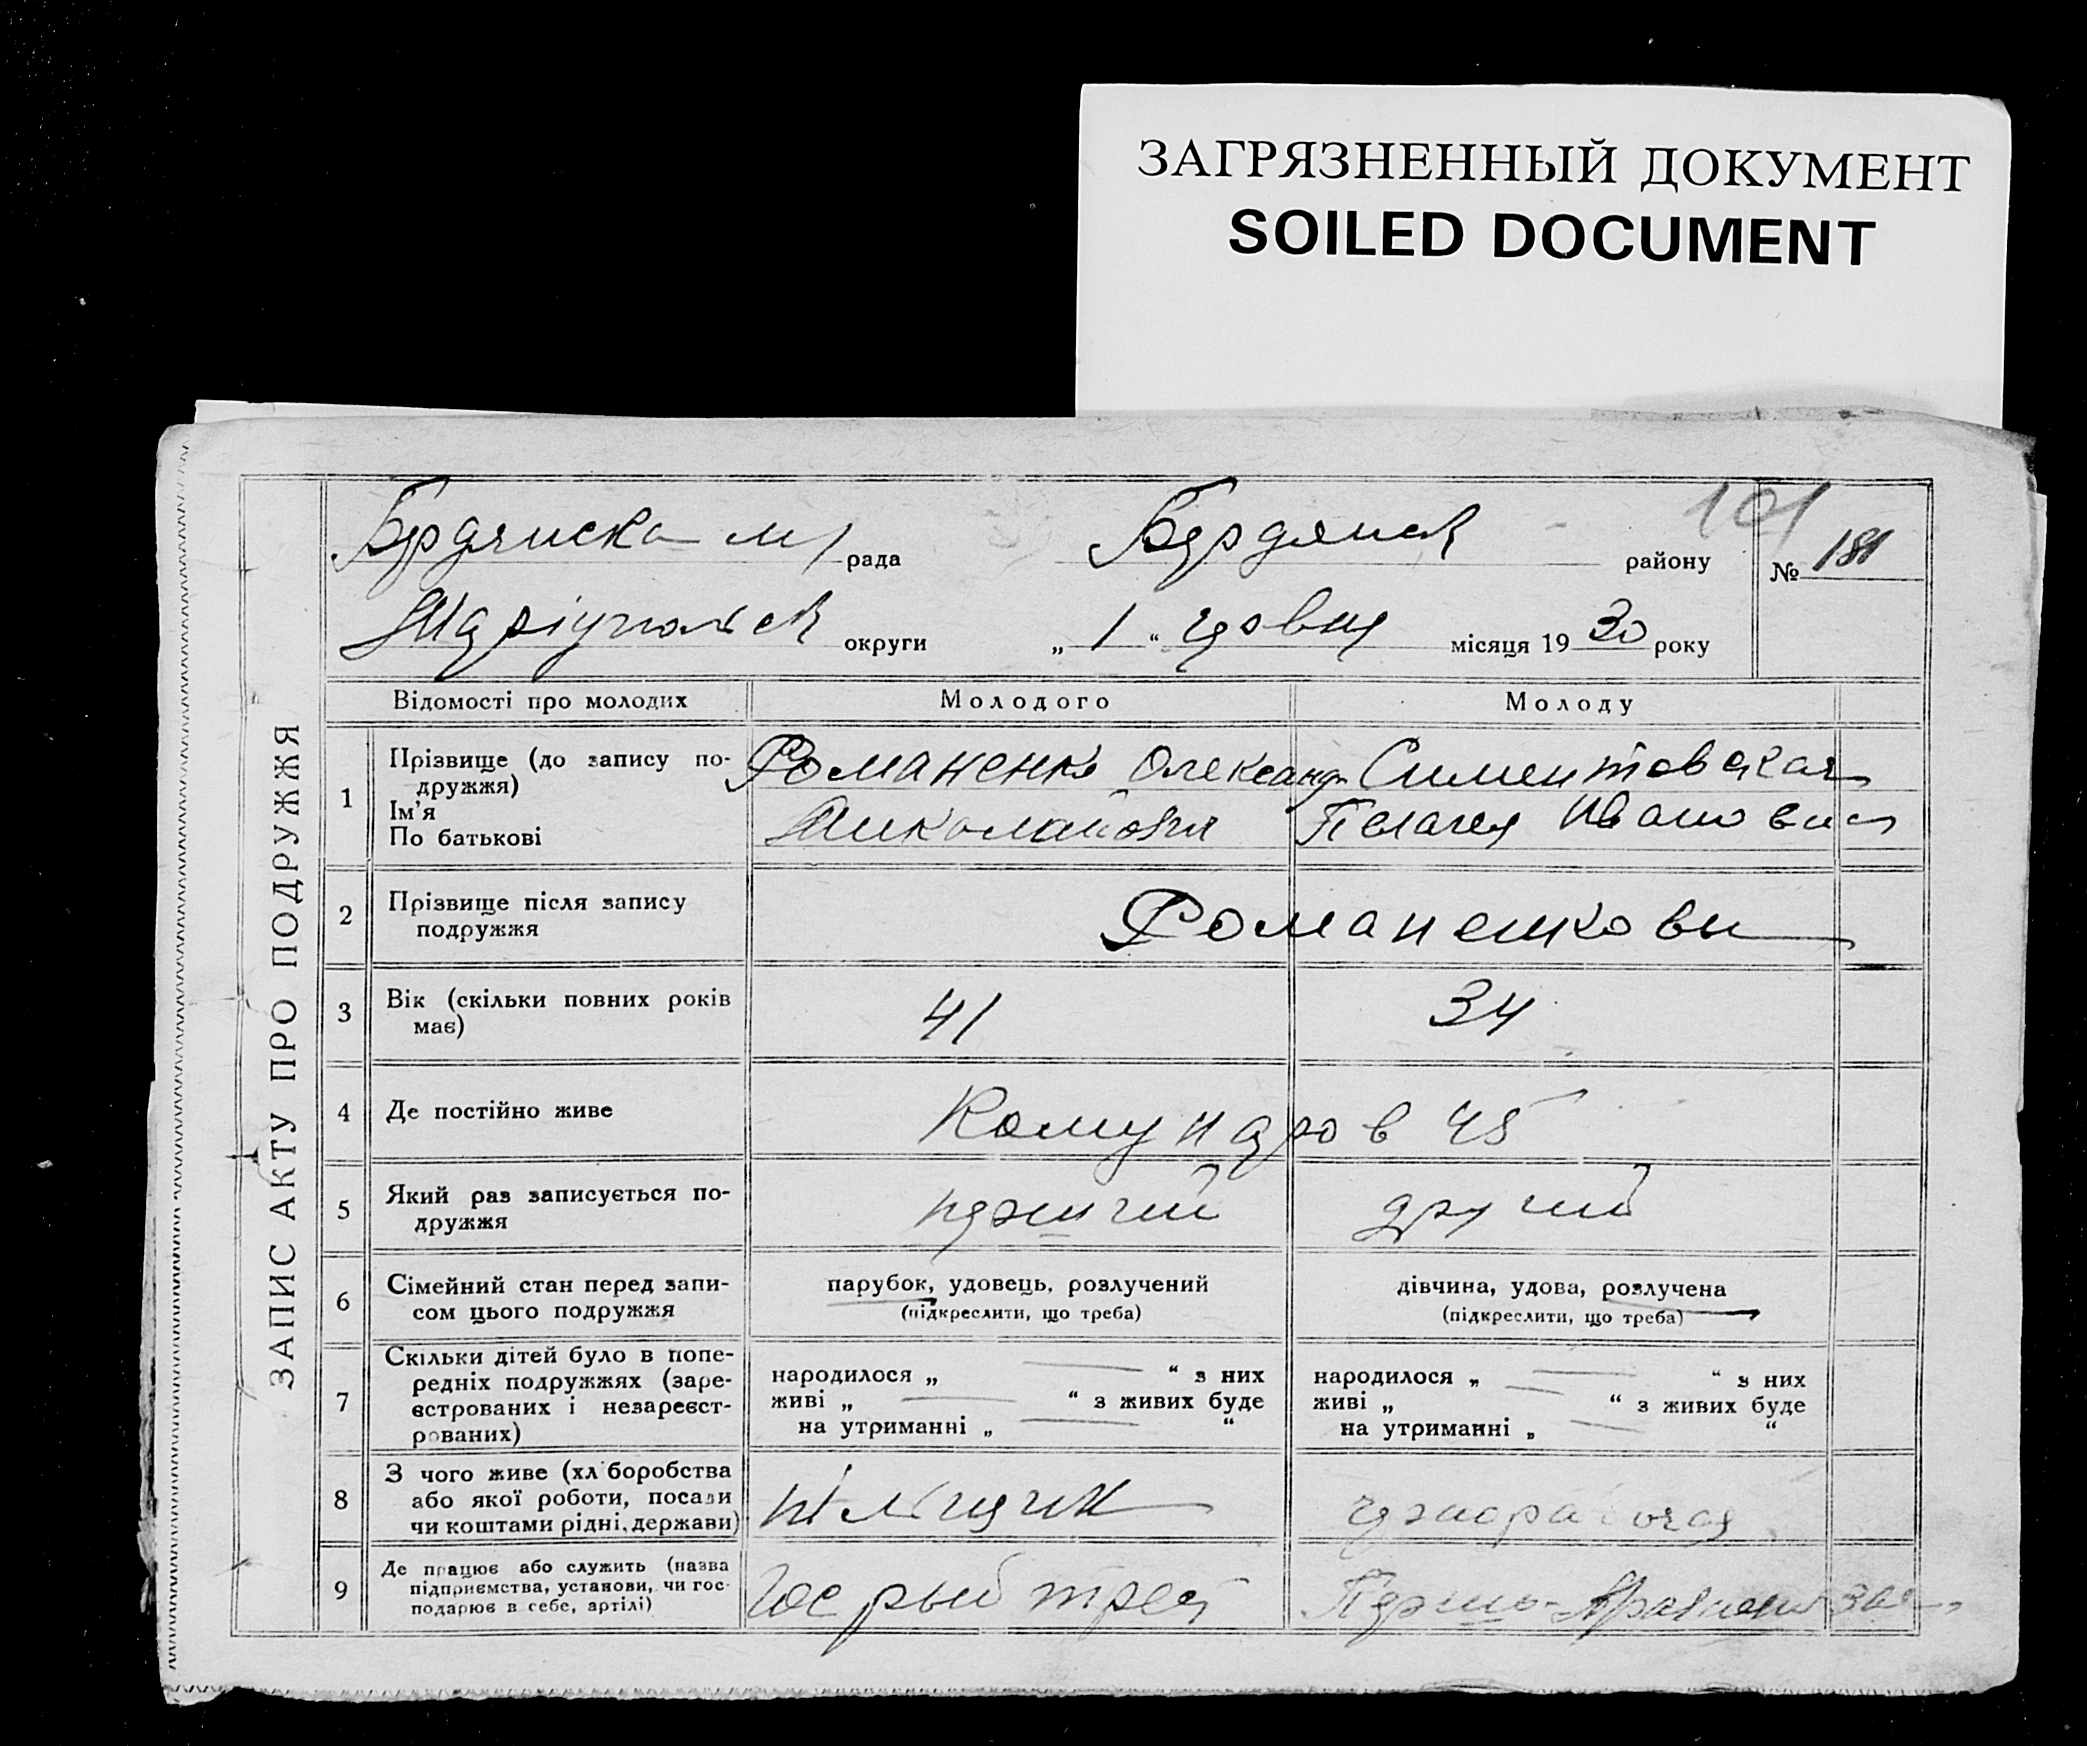 ЗАГРЯЗНЕННЫЙ ДОКУМЕНТ
SOILED DOCUMENT
101
Бердянска м/рада Бердянськ району № 181
Маріупольськ округи „ 1 “ червня місяця 19 30 року
ЗАПИС АКТУ ПРО ПОДРУЖЖЯ
Відомості про молодих Молодого Молоду
1 Прізвище (до запису по-
дружжя)
Ім’я
По батькові
Романенко Олександр
Миколайович
Симентовская
Пелагея Ивановна
2 Прізвище після запису
подружжя
Романенкови
3 Вік (скільки повних років
має)
41 34
4 Де постійно живе Комунаров 45
5 Який раз записується по-
дружжя
перший другий
6 Сімейний стан перед запи-
сом цього подружжя
парубок, удовець, розлучений
(підкреслити, що треба)
дівчина, удова, розлучена
(підкреслити, що треба)
7 Скільки дітей було в попе-
редніх подружжях (заре-
єстрованих і незареєст-
рованих)
народилося „ “ з них
живі „ “ з живих буде
на утриманні „ “
народилося „ “ з них
живі „ “ з живих буде
на утриманні „ “
8 З чого живе (хліборобства
або якої роботи, посади
чи коштами рідні, держави)
9 Де працює або служить (назва
підприємства, установи, чи гос-
подарює в себе, артілі)
Госрыбтрест